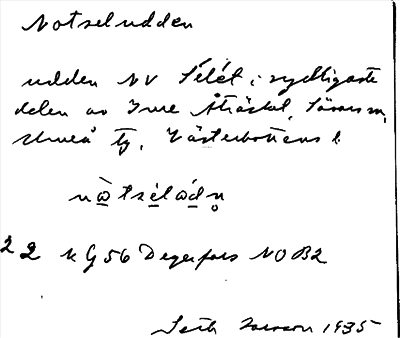 Notseludden
udden NV Sélét i sydligaste
delen av Yttre Åträsket, Sävars sn,
Umeå tg, Västerbottens l.
nòtsélòdṇ
22 K G 56 Degerfors NO B2
Seth Larsson 1935